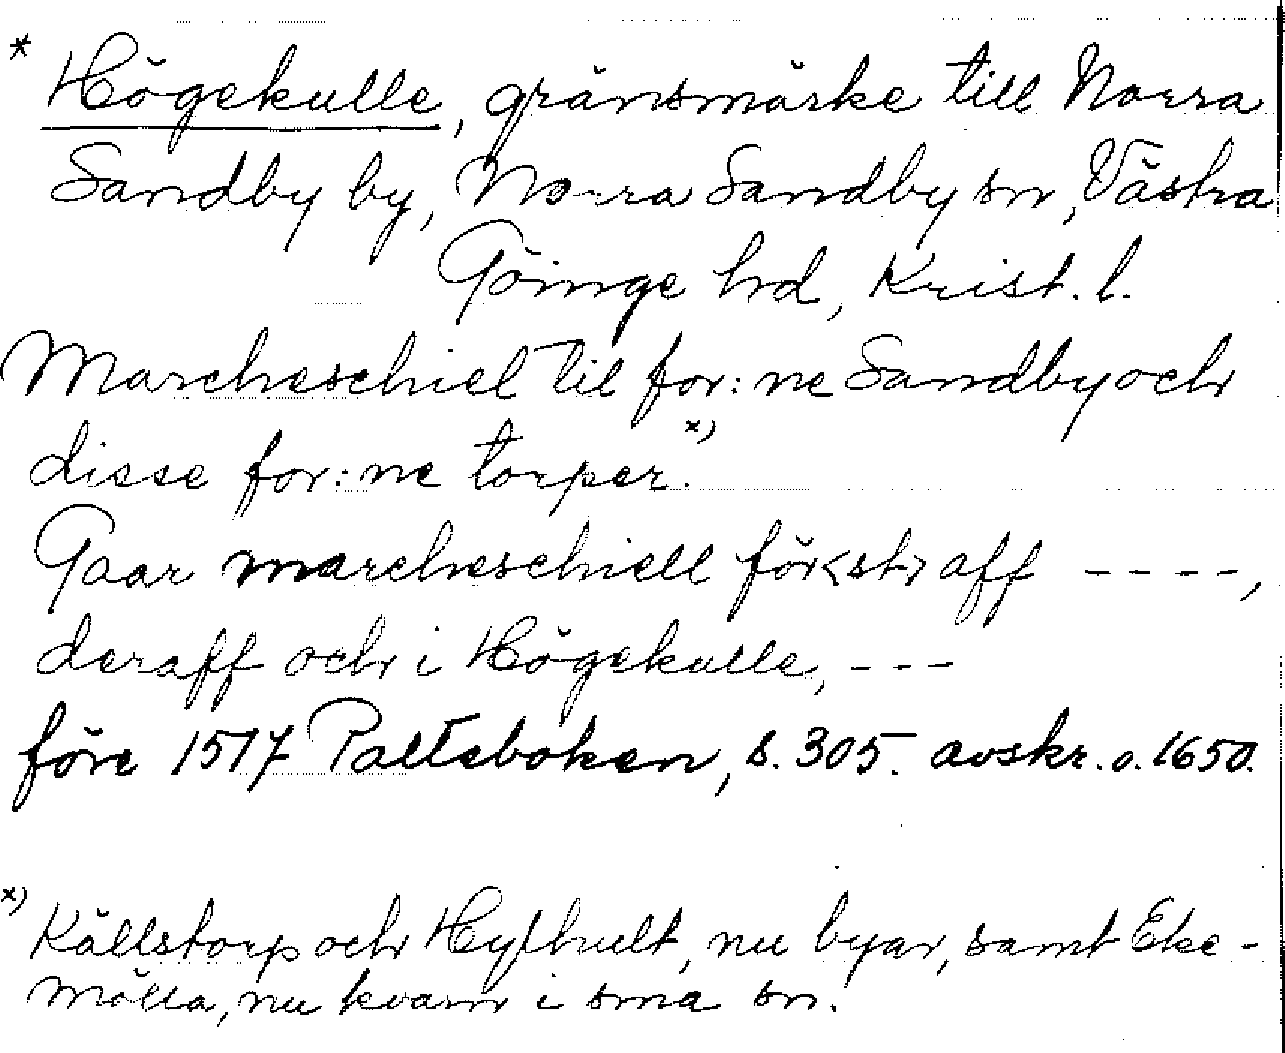 * Högekulle, gränsmärke till Norra
Sandby by, Norra Sandby sn, Västra
Göinge hd, Krist. l.
Marcheschiel til for:ne Sandby och
disse for:ne torper.x)
Gaar marcheschiell för<st> aff ----,
deraff och i Högekulle, ---
före 1517 Palteboken, s. 305. avskr. o. 1650.
x) Källstorp och Hylhult, nu byar, samt Eke-
mölla, nu kvarn i sma sn.